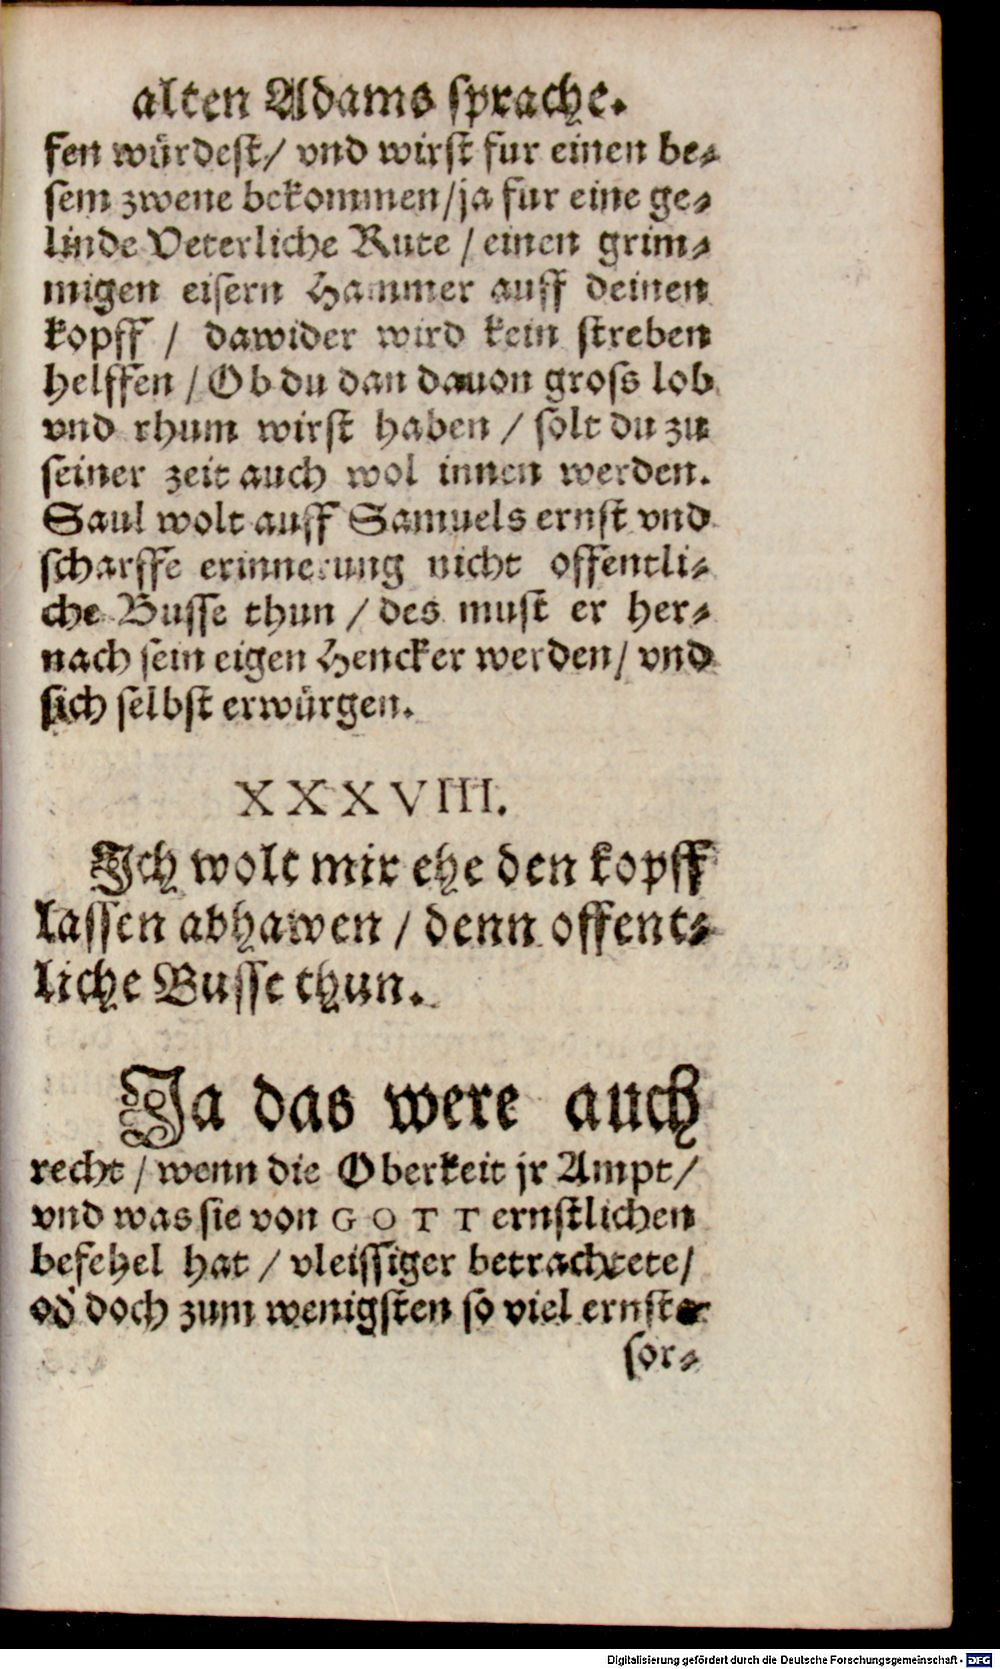 alten Adams sprache.
fen würdest/ vnd wirst fur einen be-
sem zwene bekommen/ja fur eine ge-
linde Veterliche Rute / einen grim-
migen eisern Hammer auff deinen
kopff / dawider wird kein streben
helffen / Ob du dan dauon gross lob
vnd rhum wirst haben / solt du zu
seiner zeit auch wol innen werden.
Saul wolt auff Samuels ernst vnd
scharffe erinnerung nicht offentli-
che Busse thun / des must er her-
nach sein eigen Hencker werden/ vnd
sich selbst erwürgen.
XXXVIII.
Ich wolt mir ehe den kopff
lassen abhawen / denn offent-
liche Busse thun.
Ja das were auch
recht / wenn die Oberkeit jr Ampt/
vnd was sie von GOTT ernstlichen
befehel hat / vleissiger betrachtete/
od' doch zum wenigsten so viel ernste
sor-
Digitalisierung gefördert durch die Deutsche Forschungsgemeinschaft - DFG